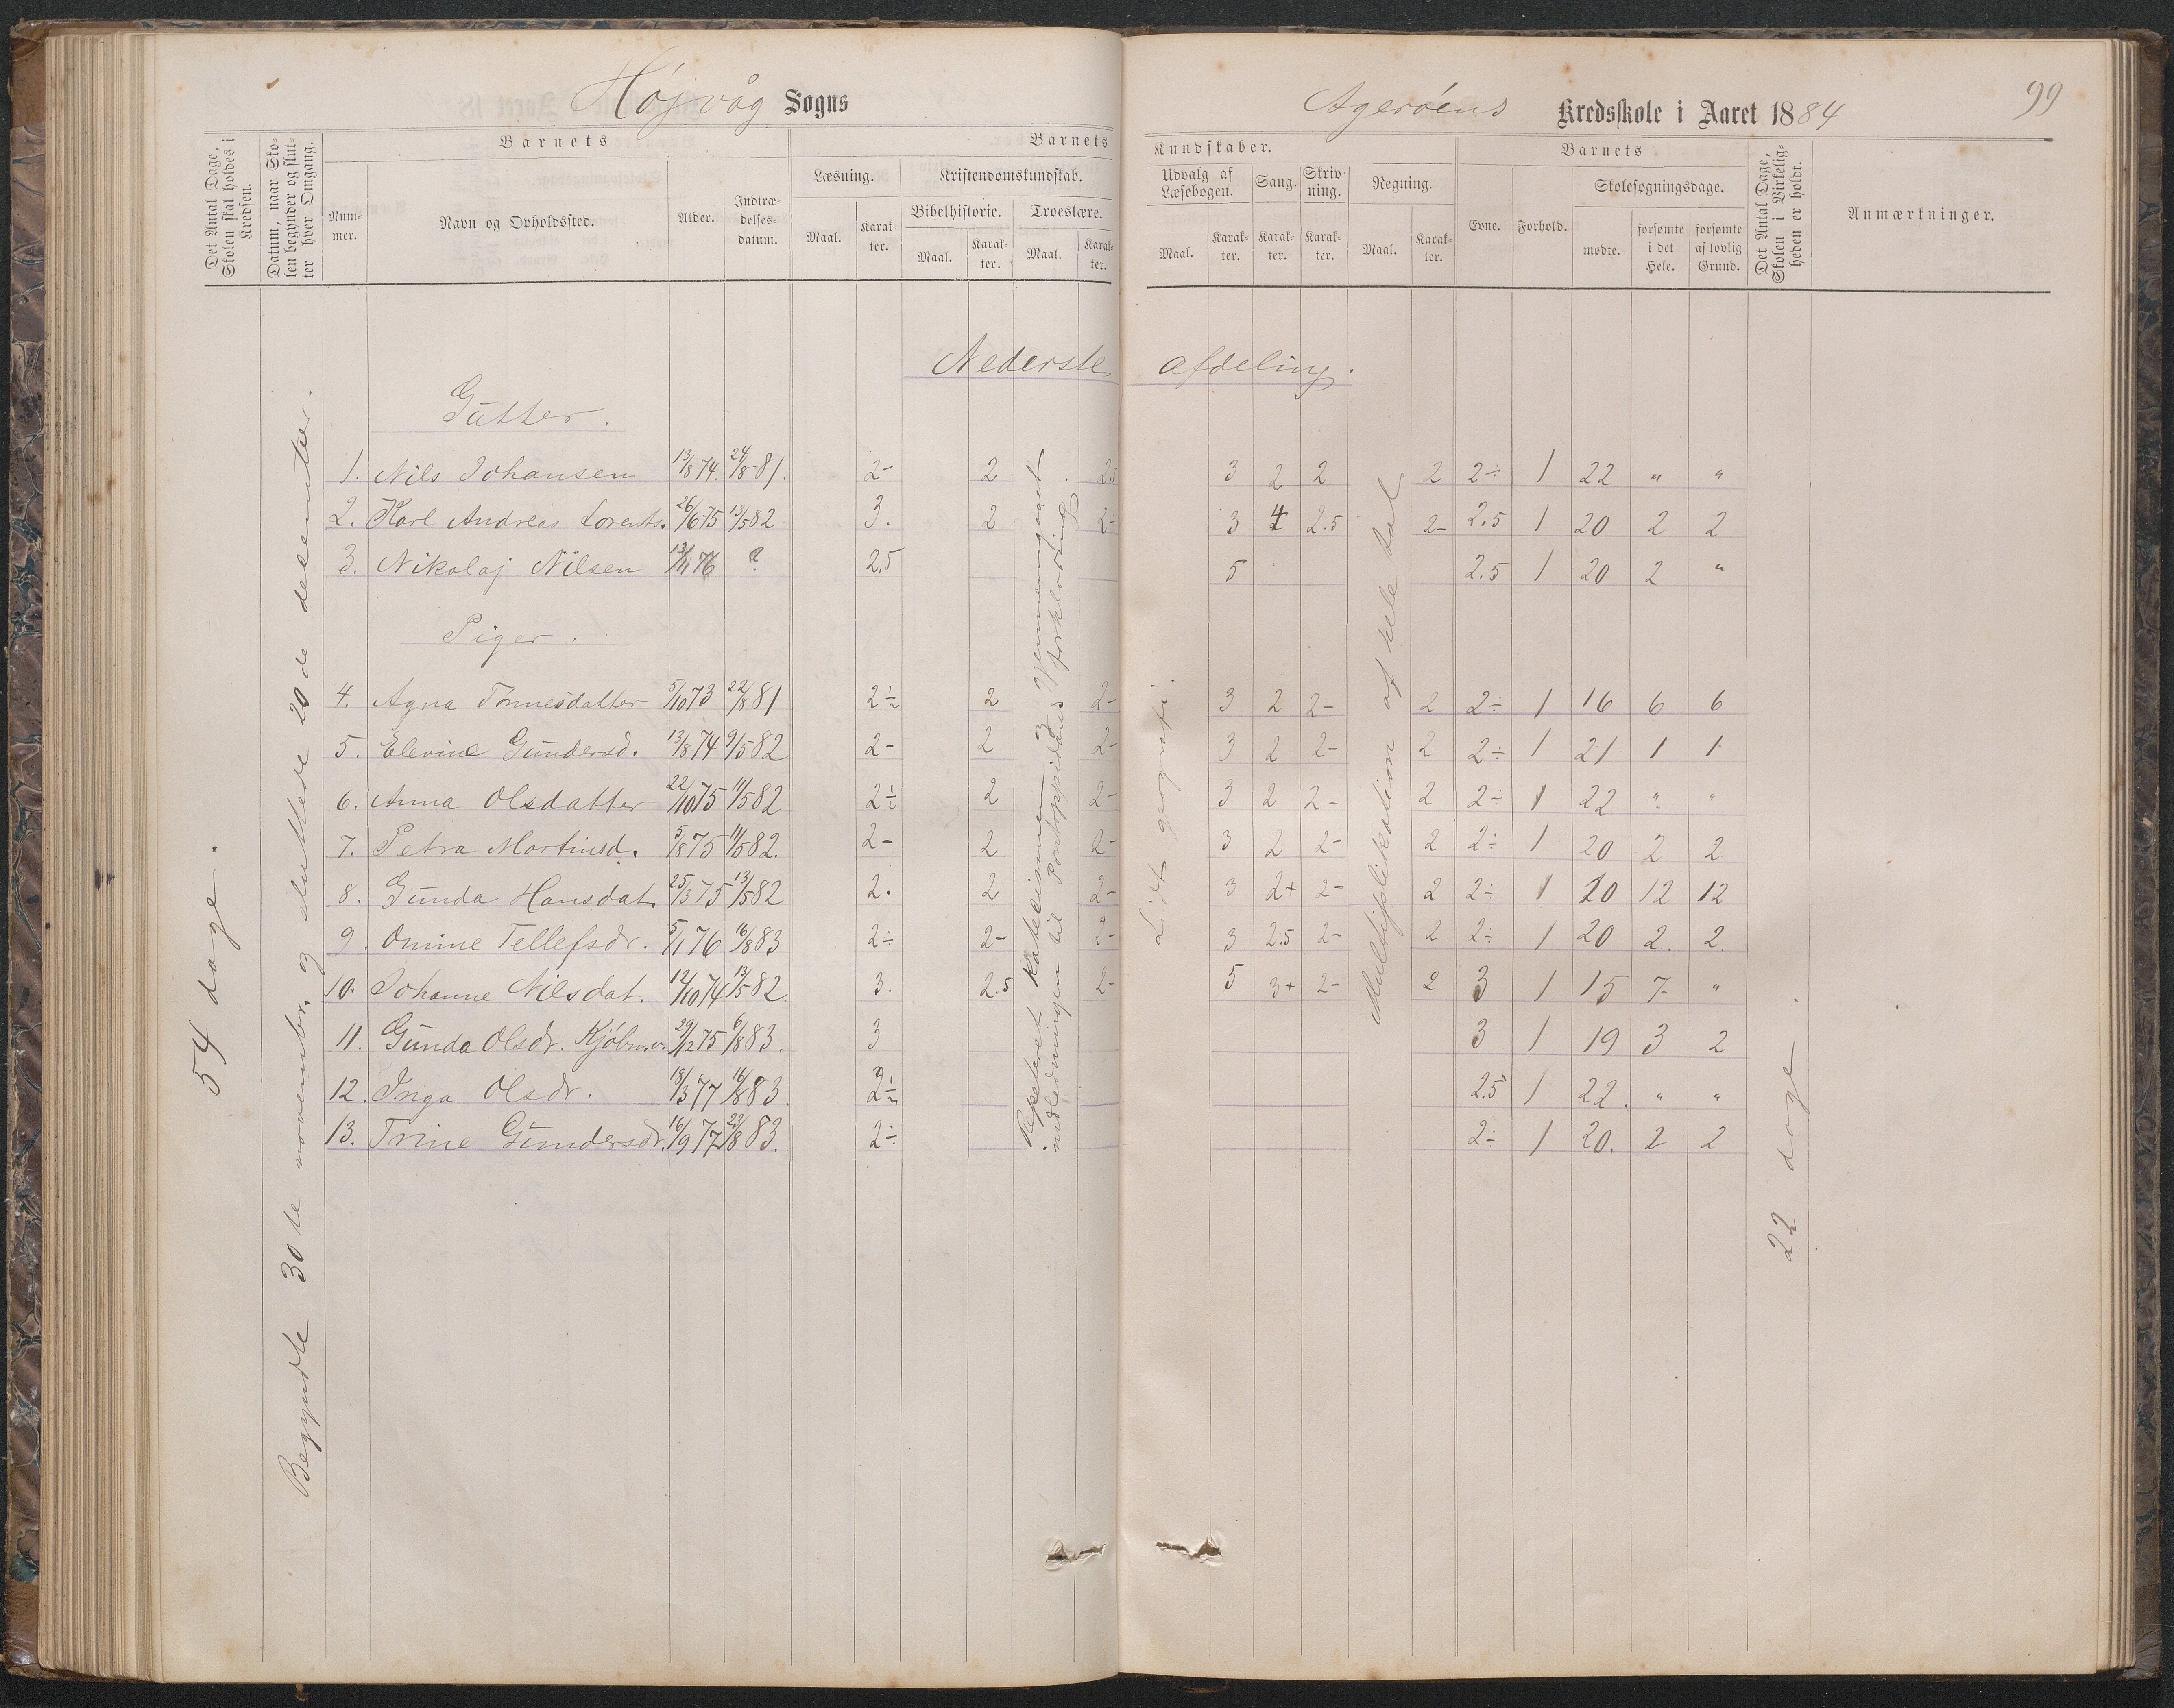 Højvåg Sogns
Agerøens Kredsskole i Aaret 1884
99
Det Antal Dage, Skolen skal holdes i Kredsen.
Datum, naar Skolen begynder og slutter hver Omgang.
Barnets
Nummer.
Navn og Opholdssted.
Alder.
Indtrædelsesdatum.
Barnets
Læsning.
Maal.
Karakter.
Kristendomskundskab.
Bibelhistorie.
Maal.
Karakter.
Troeslære.
Maal.
Karakter.
Kundskaber.
Udvalg af Læsebogen.
Maal.
Karakter.
Sang.
Karakter.
Skrivning.
Karakter.
Regning.
Maal.
Karakter.
Barnets
Evne.
Forhold.
Skolesøgningsdage.
mødte.
forsømte i det Hele.
forsømte af lovlig Grund.
Det Antal Dage, Skolen i Virkeligheden er holdt.
Anmærkninger.
Nederste afdeling.
Gutter.
1. Nils Johansen 13/8 74. 24/8 81. 2- 2 2.5 3 2 2 2 2÷ 1 22 " "
2. Karl Andreas Lorents. 26/6 75 13/5 82 3. 2 2- 3 4 2.5 2- 2.5 1 20 2 2
3. Nikolaj Nilsen 13/11 76 ? 2.5 5 2.5 1 20 2 "
Piger.
4. Agna Tønnesdatter 5/10 73 22/8 81 2÷ 2 2- 3 2 2- 2 2÷ 1 16 6 6
5. Elevine Gundersd. 13/8 74 9/5 82 2- 2 2- 3 2 2- 2 2÷ 1 21 1 1
6. Anna Olsdatter 22/10 75 11/5 82 2÷ 2 2- 3 2 2- 2 2÷ 1 22 " "
7. Petra Martinsd. 5/8 75 11/5 82. 2- 2 2- 3 2 2- 2 2÷ 1 20 2 2
8. Gunda Hansdat. 25/3 75 13/5 82 2. 2 2- 3 2+ 2- 2 2÷ 1 10 12 12
9. Omine Tellefsdr. 5/1 76 16/8 83 2÷ 2- 2- 3 2.5 2- 2 2÷ 1 20 2. 2.
10. Johanne Nilsdat. 12/10 74 13/5 82. 3. 2.5 2- 5 3+ 2- 2 3 1 15 7- "
11. Gunda Olsdr. 29/12 75 6/8 83. 3 3 1 19 3 2
12. Inga Olsdr. 18/3 77 16/8 83. 2÷ 2.5 1 22. " "
13. Trine Gundersdr. 16/9 77 23/8 83. 2÷ 2÷ 1 20. 2 2
54 dage.
Begyndte 30te novembr. og sluttede 20de decembr.
Repeteret katekismen. Gjennemgaaet indledningen til Pontoppidans forklaring.
Lidt geografi.
Multiplikation af hele tal
22 dage.